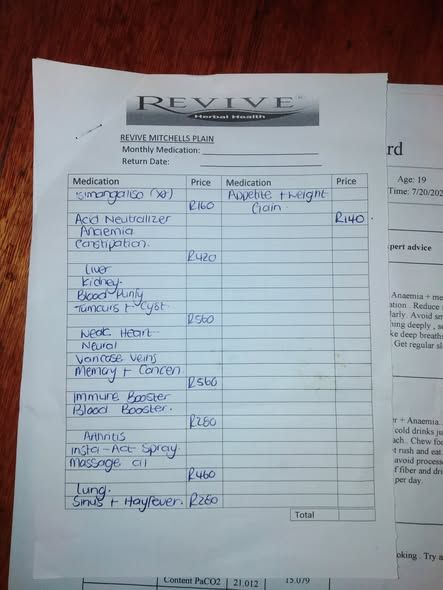 REVIVE
Herbal Health
REVIVE MITCHELLS PLAIN
Monthly Medication:
Return Date:
Medication Price Medication Price
Simangaliso (x2) Appetite + Weight
R160 Gain
Acid Neutralizer R140
Anaemia
Constipation
R420
Liver
Kidney
Blood Purify
Tumours + Cyst
R560
Weak Heart
Neural
Varicose Veins
Memory + Concen
R560
Immune Booster
Blood Booster.
R280
Arthritis
Insta-Act Spray
Massage Oil
R460
Lung.
Sinus + Hayfever. R280
Total
rd
Age: 19
Time: 7/20/202
pert advice
Anaemia + me
ation. Reduce
larly. Avoid sm
hing deeply , s
ke deep breaths
Get regular sl
er + Anaemia.
cold drinks ju
ach. Chew foo
t rush and eat
avoid process
f fiber and dri
per day.
oking. Try a
Content PaCO2 21.012 15.079